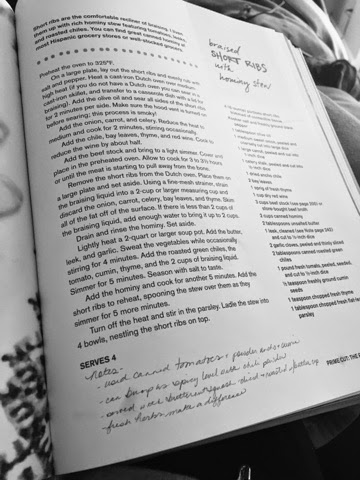 Short ribs are the comfortable recliner of braising. I lower
them up with rich hominy stew featuring tomatoes,
and roasted chiles. You can find great canned hominy at
most Hispanic grocery stores or well-stocked grocers.
braised
SHORT RIBS
with
hominy stew
Preheat the oven to 325°F.
On a large plate, lay out the short ribs and evenly
salt and pepper. Heat a cast-iron Dutch oven over
high heat (if you do not have a Dutch oven, you can sear in a
cast-iron skillet, and transfer to a casserole dish with a lid for
braising). Add the olive oil and sear all sides of the short ribs
for 2 minutes per side. Make sure the hood vent is turned on
before searing; this process is smoky!
Add the onion, carrot, and celery. Reduce the heat to
medium and cook for 2 minutes, stirring occasionally.
Add the chile, bay leaves, thyme, and red wine. Cook to
reduce the wine by about half.
Add the beef stock and bring to a light simmer. Cover and
place in the preheated oven. Allow to cook for 3 to 3½ hours,
until the meat is starting to pull away from the bone.
Remove the short ribs from the Dutch oven. Place them on
a large plate and set aside. Using a fine-mesh strainer, strain
the braising liquid into a 2-cup or larger measuring cup and
discard the onion, carrot, celery, bay leaves, and thyme. Skim
all of the fat off of the surface. If there is less than 2 cups of
the braising liquid, add enough water to bring it up to 2 cups.
Drain and rinse the hominy. Set aside.
Lightly heat a 2-quart or larger soup pot. Add the butter,
leek, and garlic. Sweat the vegetables while occasionally
stirring for 4 minutes. Add the roasted green chiles, the
tomato, cumin, thyme, and the 2 cups of braising liquid.
Simmer for 5 minutes. Season with salt to taste.
Add the hominy and cook for another 5 minutes. Add the
short ribs to reheat, spooning the stew over them as they
simmer for 5 more minutes.
Turn off the heat and stir in the parsley. Ladle the stew into
4 bowls, nestling the short ribs on top.
SERVES 4
1 dried ancho chile
2 bay leaves
1 sprig of fresh thyme
1 cup dry red wine
3 cups beef stock (see page 205) or
store-bought beef broth
2 cups canned hominy
2 tablespoons unsalted butter
1 leek, cleaned (see page 245)
and cut to ½-inch dice
2 garlic cloves, peeled and thinly sliced
2 tablespoons canned roasted
green chiles
1 pound fresh tomato, peeled, seeded,
and cut to ½-inch dice
½ teaspoon freshly ground cumin
seeds
1 teaspoon chopped fresh thyme
1 tablespoon chopped fresh flat
parsley
notes-
- used canned tomatoes + powder
- can bump up spicy level with
- served over butternut squash
- fresh herbs make a difference
PRIME CUT: THE